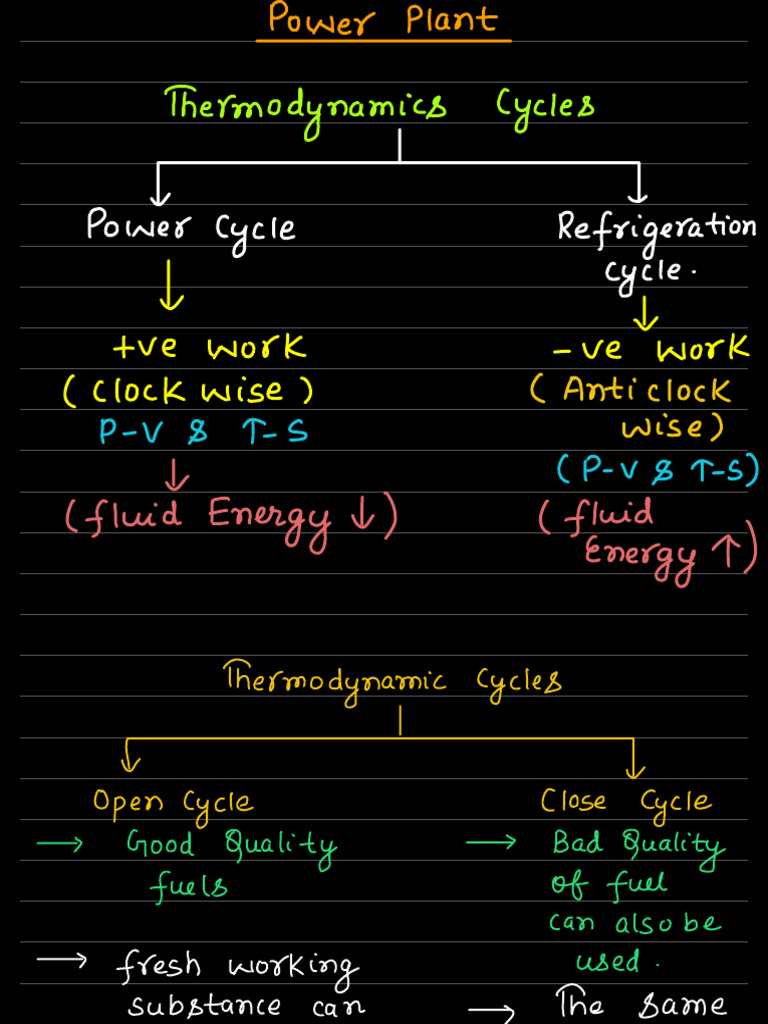 Power Plant
Thermodynamics Cycles
Power Cycle
Refrigeration
cycle.
+ve work
(Clock wise)
P-V & T-S
(fluid Energy ↓)
-ve work
(Anticlock
wise)
(P-V & T-S)
(fluid
Energy ↑)
Thermodynamic Cycles
Open Cycle
→ Good Quality
fuels
→ fresh working
substance can
Close Cycle
→ Bad Quality
of fuel
can also be
used.
→ The same